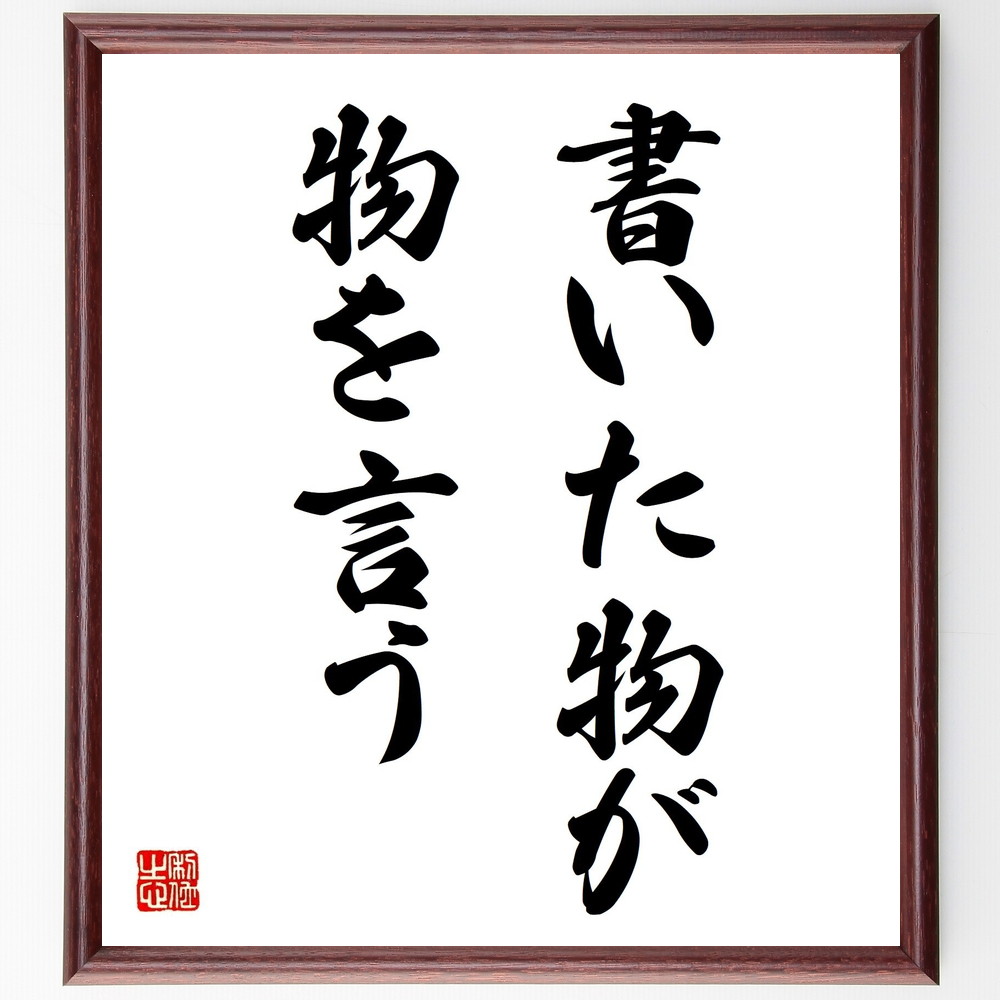 書いた物が
物を言う